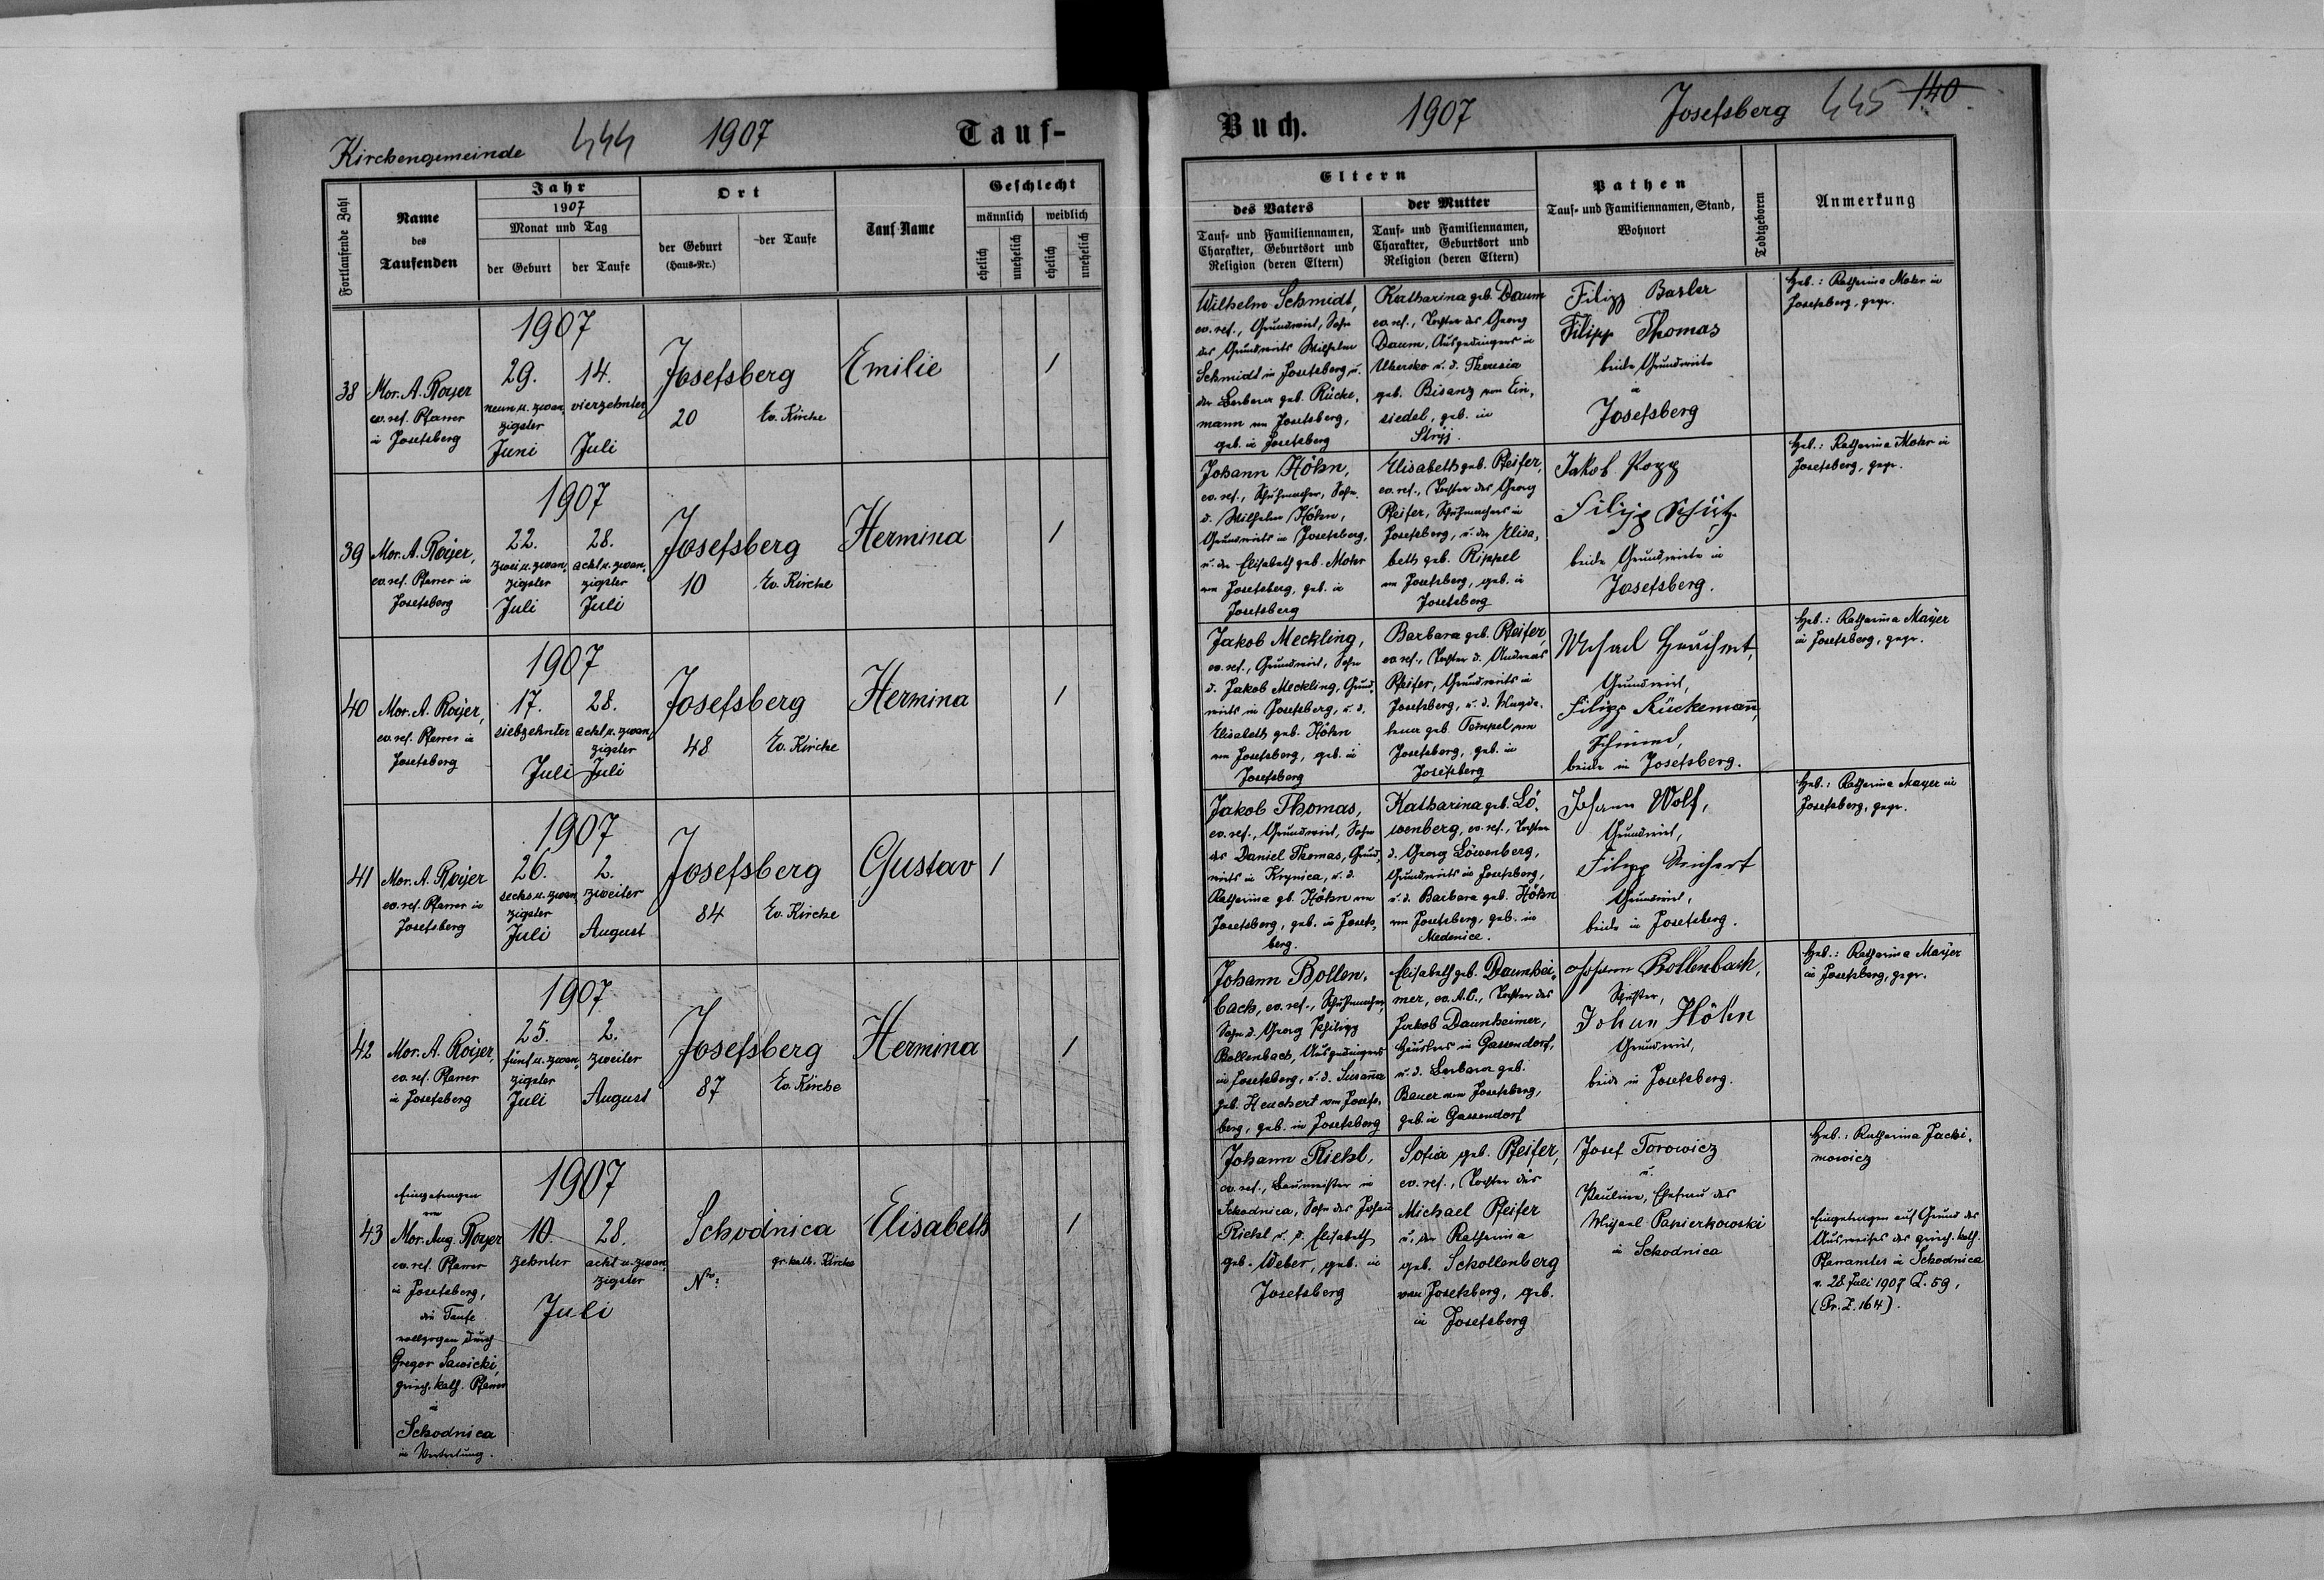 Kirchengemeinde 444 1907 Tauf-
Fortlaufende Zahl
Name
des
Taufenden
Jahr
1907
Monat und Tag
der Geburt
der Taufe
Ort
der Geburt
(Haus-Nr.)
der Taufe
Tauf-Name
Geschlecht
männlich
weiblich
ehelich
unehelich
ehelich
unehelich
38
Mor. A. Royer
ev. ref. Pfarrer
in Josefsberg
1907
29.
neun u. zwan,
zigster
Juni
14.
vierzehnter
Juli
Josefsberg
20
Ev. Kirche
Emilie
1
39
Mor. A. Royer,
ev. ref. Pfarrer in
Josefsberg
1907
22.
zwei u. zwan,
zigster
Juli
28.
acht u. zwan,
zigster
Juli
Josefsberg
10
Ev. Kirche
Hermina
1
40
Mor. A. Royer,
ev. ref. Pfarrer in
Josefsberg
1907
17.
siebzehnter
Juli
28.
acht u. zwan,
zigster
Juli
Josefsberg
48
Ev. Kirche
Hermina
1
41
Mor. A. Royer
ev. ref. Pfarrer in
Josefsberg
1907
26.
sechs u. zwan,
zigster
Juli
2.
zweiter
August
Josefsberg
84
Ev. Kirche
Gustav
1
42
Mor. A. Royer,
ev. ref. Pfarrer
in Josefsberg
1907
25.
fünf u. zwan,
zigster
Juli
2.
zweiter
August
Josefsberg
87
Ev. Kirche
Hermina
1
43
Eingetragen
von
Mor. Aug. Royer
ev. ref. Pfarrer
in Josefsberg,
die Taufe
vollzogen durch
Gregor Sawicki,
griech. kath. Pfarrer
in
Schodnica
in Vertretung.
1907
10.
zehnter
28.
acht u. zwan,
zigster
Juli
Schodnica
No:
gr. kath. Kirche
Elisabeth
1
Buch. 1907 Josefsberg 445 140
Eltern
des Vaters
Tauf- und Familiennamen,
Charakter, Geburtsort und
Religion (deren Eltern)
der Mutter
Tauf- und Familiennamen,
Charakter, Geburtsort und
Religion (deren Eltern)
Pathen
Tauf- und Familiennamen, Stand,
Wohnort
Todtgeboren
Anmerkung
Wilhelm Schmidt,
ev. ref., Grundwirt, Sohn
des Grundwirts Wilhelm
Schmidt in Josefsberg u.
der Barbara geb. Rücke,
mann von Josefsberg,
geb. in Josefsberg
Katharina geb. Daum
ev. ref., Tochter des Georg
Daum, Ausgedingers in
Uhersko u. d. Theresia
geb. Bisanz von Ein,
siedel, geb. in
Stryj.
Filipp Basler
Filipp Thomas
beide Grundwirte
in
Josefsberg
Heb.: Katharina Moher in
Josefsberg, gepr.
Johann Höhn,
ev. ref., Schuhmacher, Sohn
d. Wilhelm Höhn,
Grundwirts in Josefsberg,
u. der Elisabeth geb. Moher
von Josefsberg, geb. in
Josefsberg
Elisabeth geb. Pfeifer,
ev. ref., Tochter des Georg
Pfeifer, Schuhmachers in
Josefsberg, u. der Elisa,
beth geb. Rippel
von Josefsberg, geb. in
Josefsberg
Jakob Popp
Filipp Schütz
beide Grundwirte in
Josefsberg.
Heb.: Katharina Moher in
Josefsberg, gepr.
Jakob Meckling,
ev. ref., Grundwirt, Sohn
d. Jakob Meckling, Grund,
wirts in Josefsberg, u. d.
Elisabeth geb. Höhn
von Josefsberg, geb. in
Josefsberg
Barbara geb. Pfeifer,
ev. ref., Tochter d. Andreas
Pfeifer, Grundwirts in
Josefsberg, u. d. Magda,
lena geb. Tempel von
Josefsberg, geb. in
Josefsberg
Grundwirt,
Filipp Rückemann,
Schmied,
beide in Josefsberg.
Heb.: Katharina Mayer
in Josefsberg, gepr.
Jakob Thomas,
ev. ref., Grundwirt, Sohn
des Daniel Thomas, Grund,
wirts in Krynica, u. d.
Katharina gb. Höhn von
Josefsberg, geb. in Josefs,
berg.
Katharina geb. Lö,
wenberg, ev. ref., Tochter
d. Georg Löwenberg,
Grundwirts in Josefsberg,
u. d. Barbara geb. Höhn
von Josefsberg, geb. in
Medenice.
Johann Wolf,
Grundwirt,
Filipp Reichert
Grundwirt,
beide in Josefsberg.
Heb.: Katharina Mayer in
Josefsberg, gepr.
Johann Bollen,
bach, ev. ref., Schuhmacher,
Sohn d. Georg Philipp
Bollenbach, Ausgedingers
in Josefsberg, u. d. Susanna
geb. Heuchert von Josefs,
berg, geb. in Josefsberg
Elisabeth geb. Daunhei,
mer, ev. A.C., Tochter des
Jakob Daunheimer,
Häuslers in Gassendorf,
u. d. Barbara geb.
Bauer von Josefsberg,
geb. in Gassendorf
Johann Bollenbach,
Schuster,
Johan Höhn
Grundwirt,
beide in Josefsberg.
Heb.: Katharina Mayer
in Josefsberg, gepr.
Johann Riehl,
ev. ref., Baumeister in
Schodnica, Sohn des Johann
Riehl u. d. Elisabeth
geb. Weber, geb. in
Josefsberg
Sofia geb. Pfeifer,
ev. ref., Tochter des
Michael Pfeifer
u. der Katharina
geb. Schollenberg
von Josefsberg, geb.
in Josefsberg
Josef Torowicz
u.
Paulina, Ehefrau des
Michael Papierkowski
in Schodnica
Heb.: Katharina Jachi,
mowicz
Eingetragen auf Grund des
Ausweises des griech. kath.
Pfarramtes in Schodnica
v. 28. Juli 1907 Z. 59,
(Pr. Z. 164).